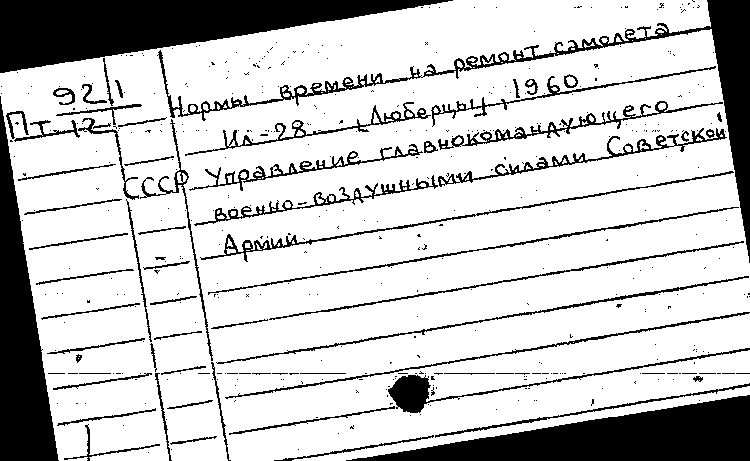 92.1
Пт-12
Нормы времени на ремонт самолета
Ил-28. [Люберцы], 1960.
СССР Управление главнокомандующего
военно-воздушными силами Советской
Армии.